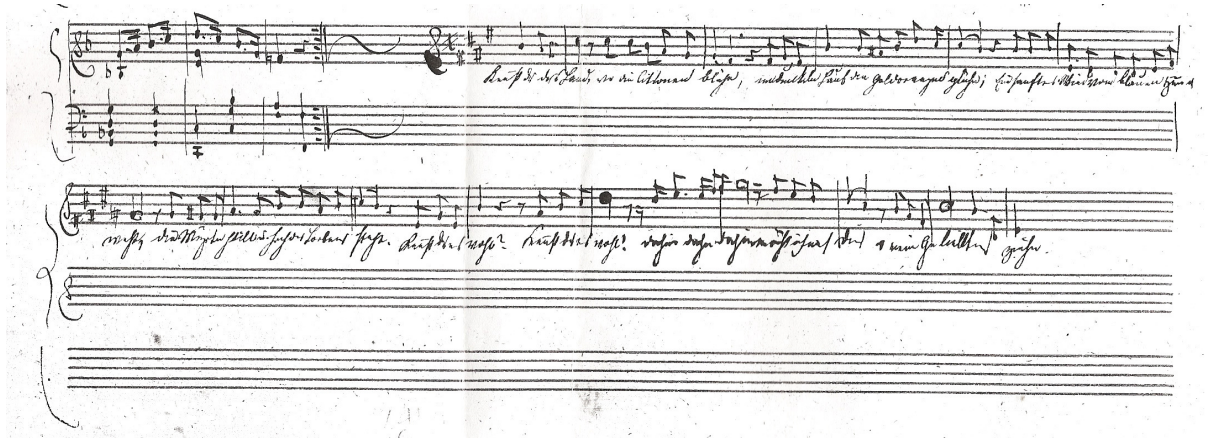 Kennst du das Land, wo die Citronen blühn, im dunkeln Laub die Goldorangen glühn; Ein sanfter Wind vom blauen Himmel
weht, die Myrte still und hoch der Lorbeer steht. Kennst du es wohl? Kennst du es wohl? dahin dahin dahin möcht ich mit dir o mein Geliebter ziehn.